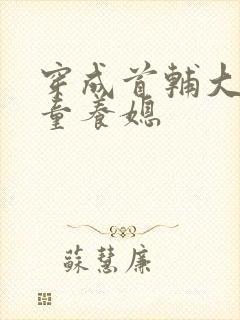 穿成首輔大
童養媳
蘇慧廉